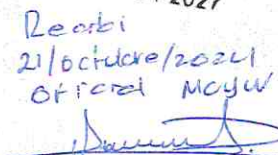 2027
Recibi
21/octubre/2024
Oficial Mayor